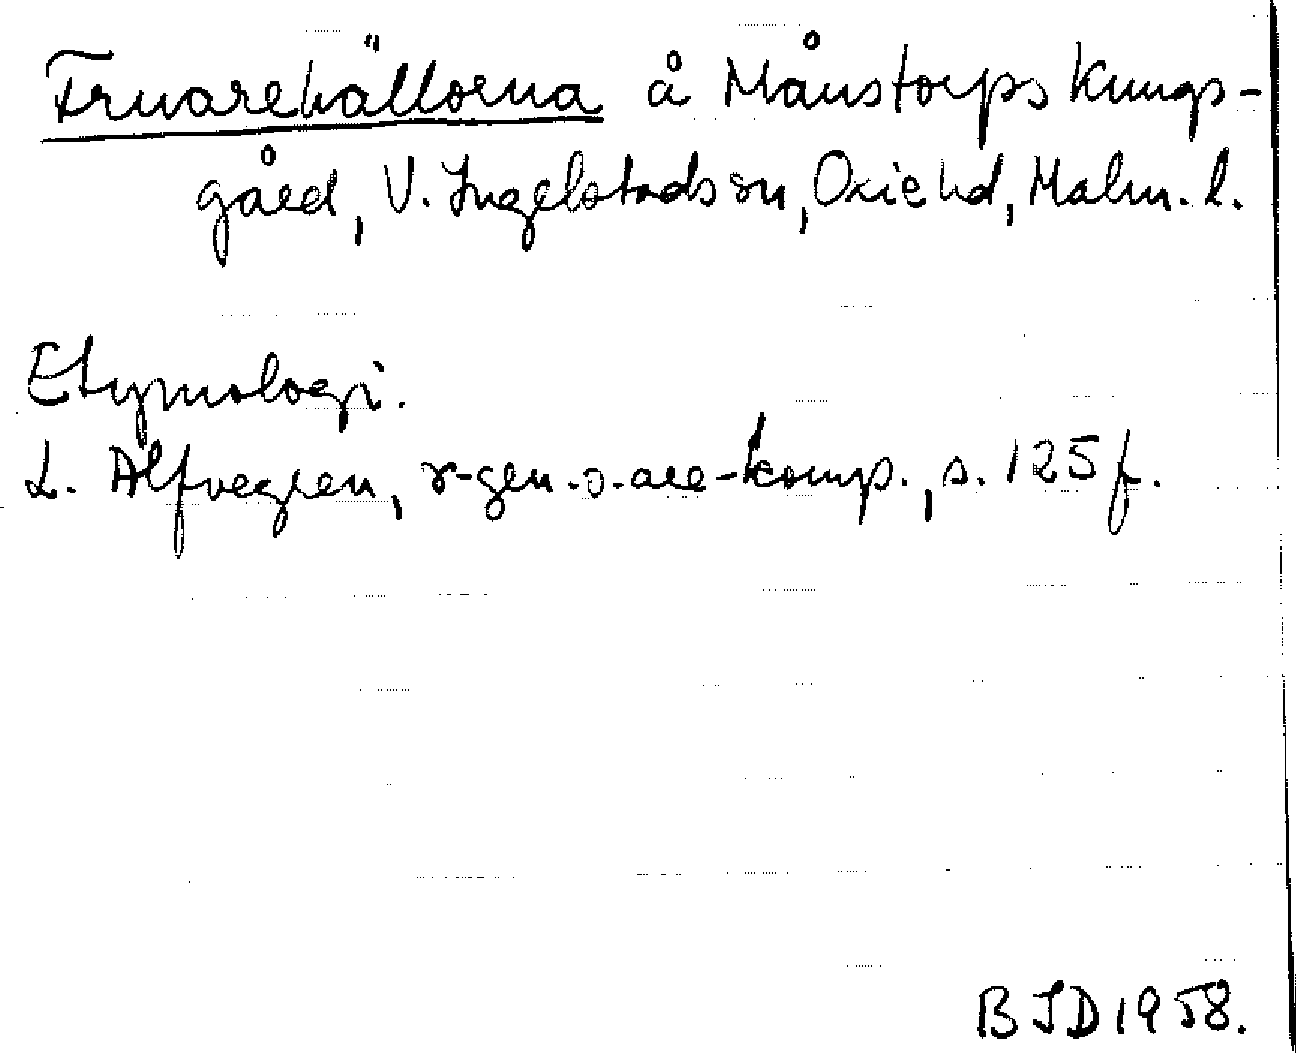 Fruarehällorna å Månstorps Kungs-
gård, V. Ingelstads sn, Oxie hd, Malm. l.
Etymologi.
L. Alfvegren, r-gen. o. are-komp., s. 125 f.
BJD 1958.